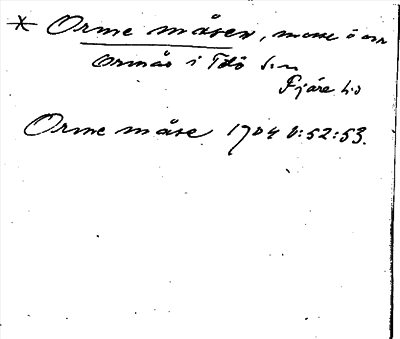 * Orme måsen, mosse ö om
Ormås i Tölö s:n
Fjäre h:d
Orme måse 1704 6:52:53.